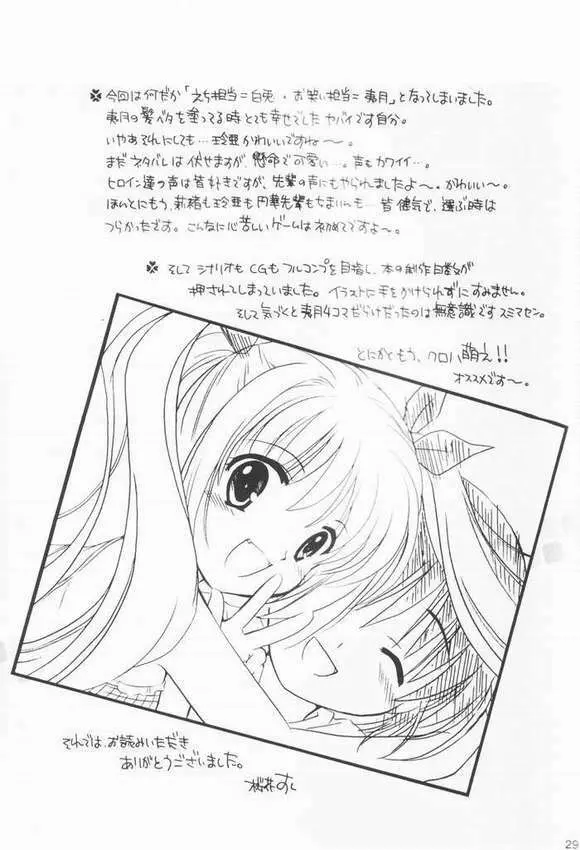 今回は何だか「えち担当=白兎・お笑い担当=夷月」となってしまいました。
夷月の髪ベタを塗ってる時とても幸せでした ヤバイです自分。
いやぁそれにしても…玲亜かわいいですね〜。
まだネタバレは伏せますが、懸命で可愛い…。声もカワイイ…。
ヒロイン達の声は皆好きですが、先輩の声にもやられましたよ〜。かわいい〜。
ほんとにもう、萩梧も玲亜も円華先輩もちまいんも…皆健気で、選ぶ時は
つらかったです。こんなに心苦しいゲームは初めてですよ〜。
そして シナリオも CGも フルコンプを目指し、本の制作日数が
押されてしまっていました。イラストに手をかけられずにすみません。
そして気づくと夷月4コマだらけだったのは無意識です スミマセン。
とにかくもう、クロハ萌え!!
オススメです〜。
それでは、お読みいただき
ありがとうございました。
桜花すし
29